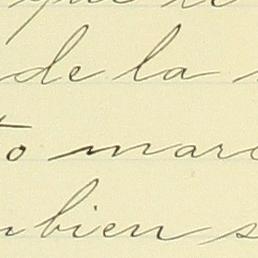 que
de la
to marc
bien s